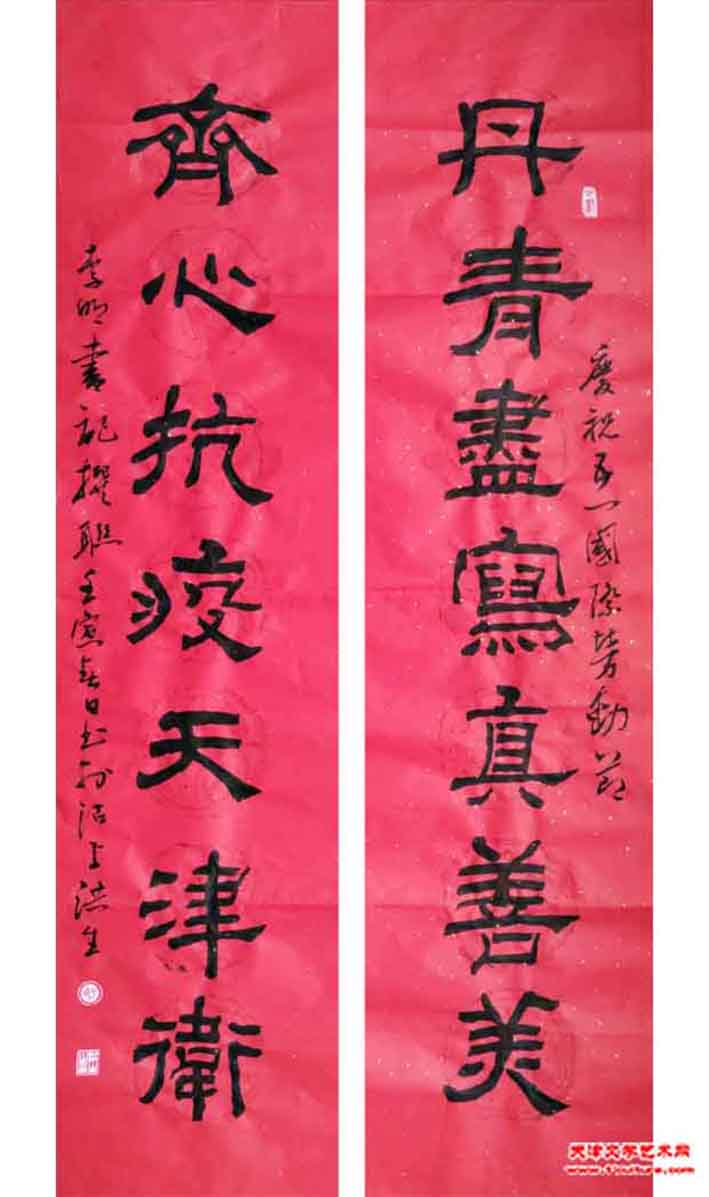 慶祝五一國際勞動節
丹青盡寫真善美
齊心抗疫天津衛
李明書記撰聯壬寅春日書於沽上洪生
天津文学艺术网
www.tjculture.com